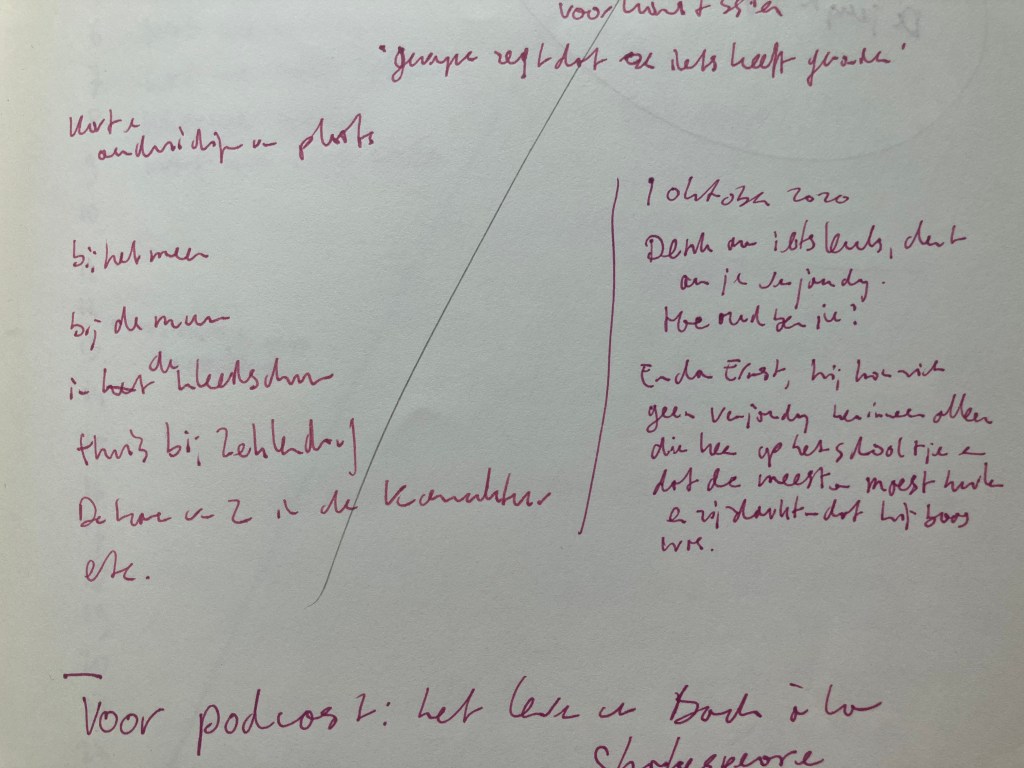 '
zegt dat ze iets heeft
Korte
aanduidingen van plaats
bij het meer
bij de muur
in het de kleedschuur
thuis bij Zehlendorf
De hare van Z in de
etc.
1 oktober 2020
Denk aan iets leuks, denk
aan je verjaardag.
Hoe oud ben je?
En dan Ernst, hij kon zich
geen verjaardag herinneren alleen
die keer op het schooltje en
dat de meester moest huilen
en zij dacht dat hij boos
was.
Voor podcast: het leven van Bach à la
Shakespeare